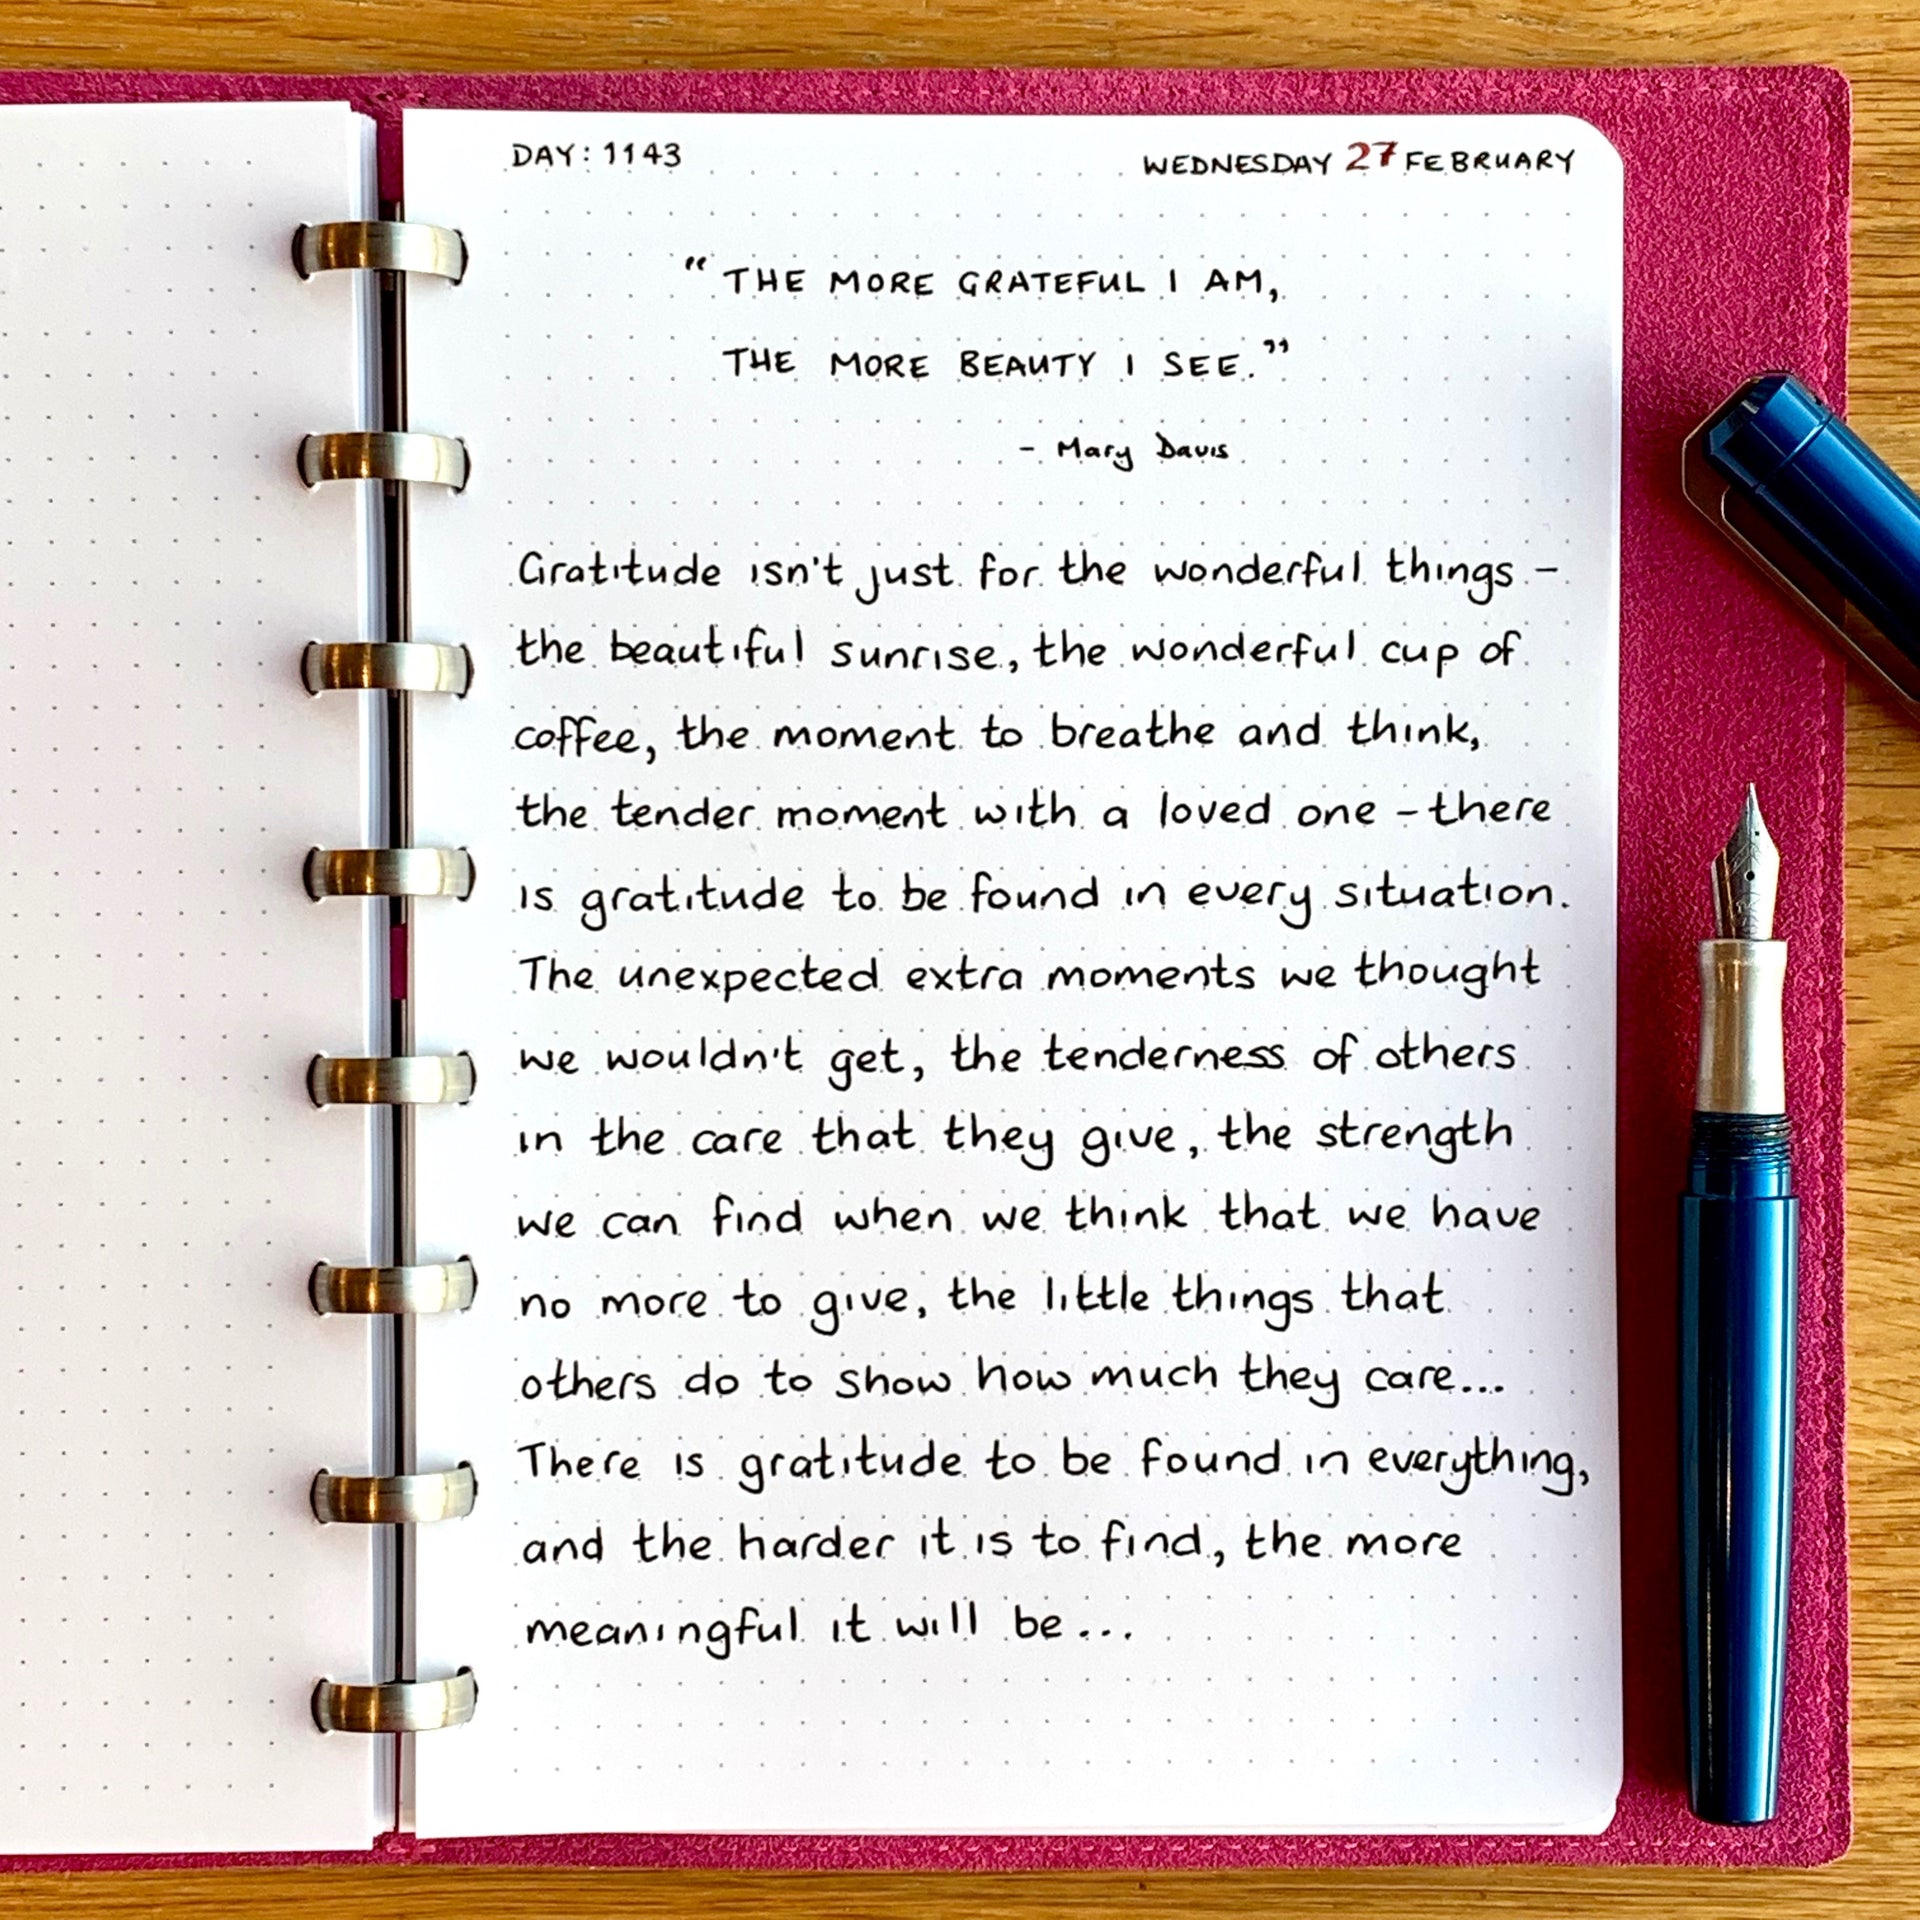 DAY: 1143 WEDNESDAY 27 FEBRUARY
"THE MORE GRATEFUL I AM,
THE MORE BEAUTY I SEE."
- Mary Davis
Gratitude isn't just for the wonderful things -
the beautiful sunrise, the wonderful cup of
coffee, the moment to breathe and think,
the tender moment with a loved one - there
is gratitude to be found in every situation.
The unexpected extra moments we thought
we wouldn't get, the tenderness of others
in the care that they give, the strength
we can find when we think that we have
no more to give, the little things that
others do to show how much they care...
There is gratitude to be found in everything,
and the harder it is to find, the more
meaningful it will be...